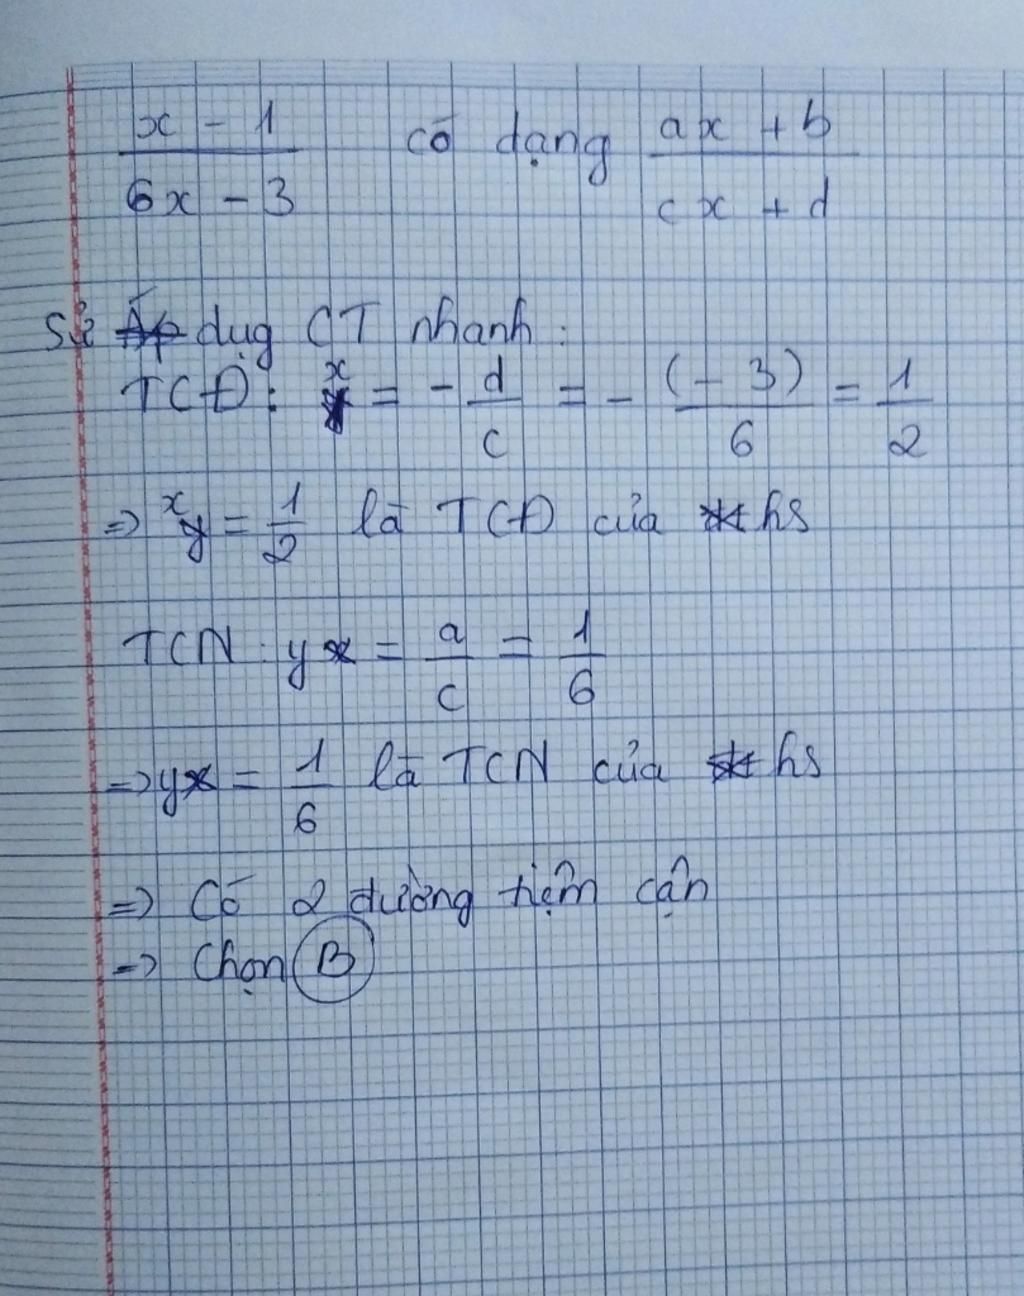 x - 1 / 6x - 3 có dạng ax + b / cx + d
Sử dụg CT nhanh:
TCĐ: x = - d/c = - (-3)/6 = 1/2
=> x = 1/2 là TCĐ của hs
TCN: y = a/c = 1/6
=> y = 1/6 là TCN của hs
=> Có 2 đường tiệm cận
=> Chọn B